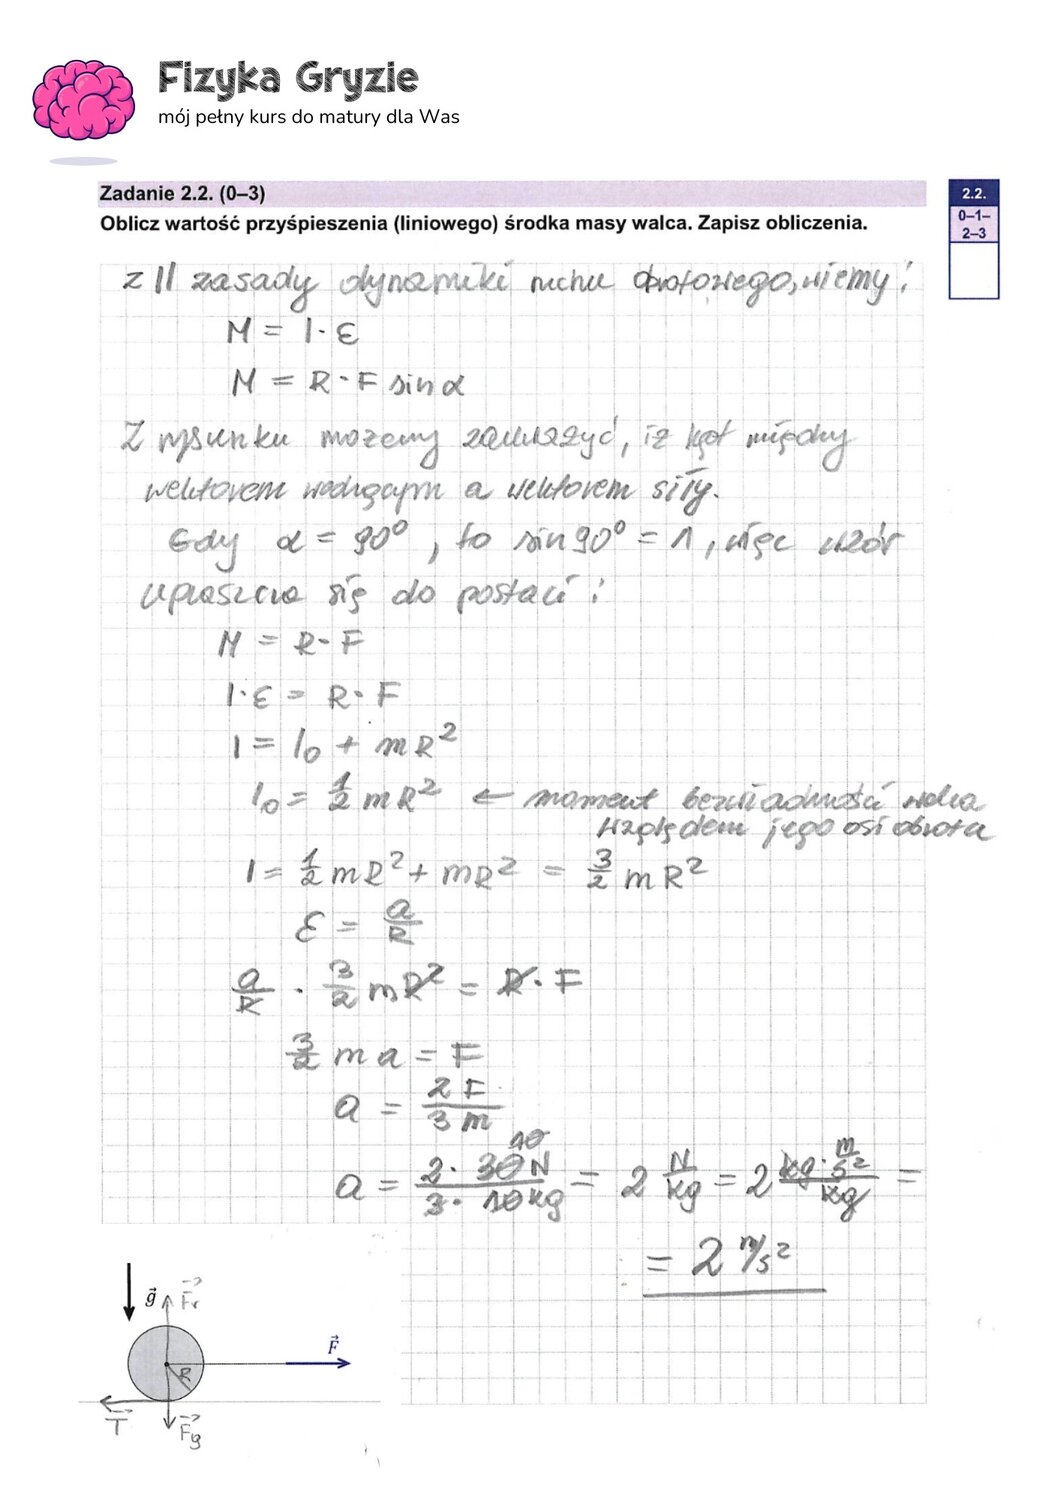 Fizyka Gryzie
mój pełny kurs do matury dla Was
Zadanie 2.2. (0–3)
Oblicz wartość przyśpieszenia (liniowego) środka masy walca. Zapisz obliczenia.
2.2.
0–1–
2–3
z II zasady dynamiki ruchu obrotowego, wiemy:
M = I · ε
M = R · F sin α
Z rysunku możemy zauważyć, iż kąt między
wektorem wodzącym a wektorem siły.
Gdy α = 90°, to sin 90° = 1, więc wzór
upraszcza się do postaci:
M = R · F
I · ε = R · F
I = I₀ + mR²
I₀ = 1/2 mR² ← moment bezwładności walca
względem jego osi obrotu
I = 1/2 mR² + mR² = 3/2 mR²
ε = a/R
a/R · 3/2 mR² = R · F
3/2 m a = F
a = 2F/3m
10
a = 2 · 30 N / 3 · 10 kg = 2 N/kg = 2 kg · m/s² / kg =
= 2 m/s²
g Fr
F
R
T
Fg